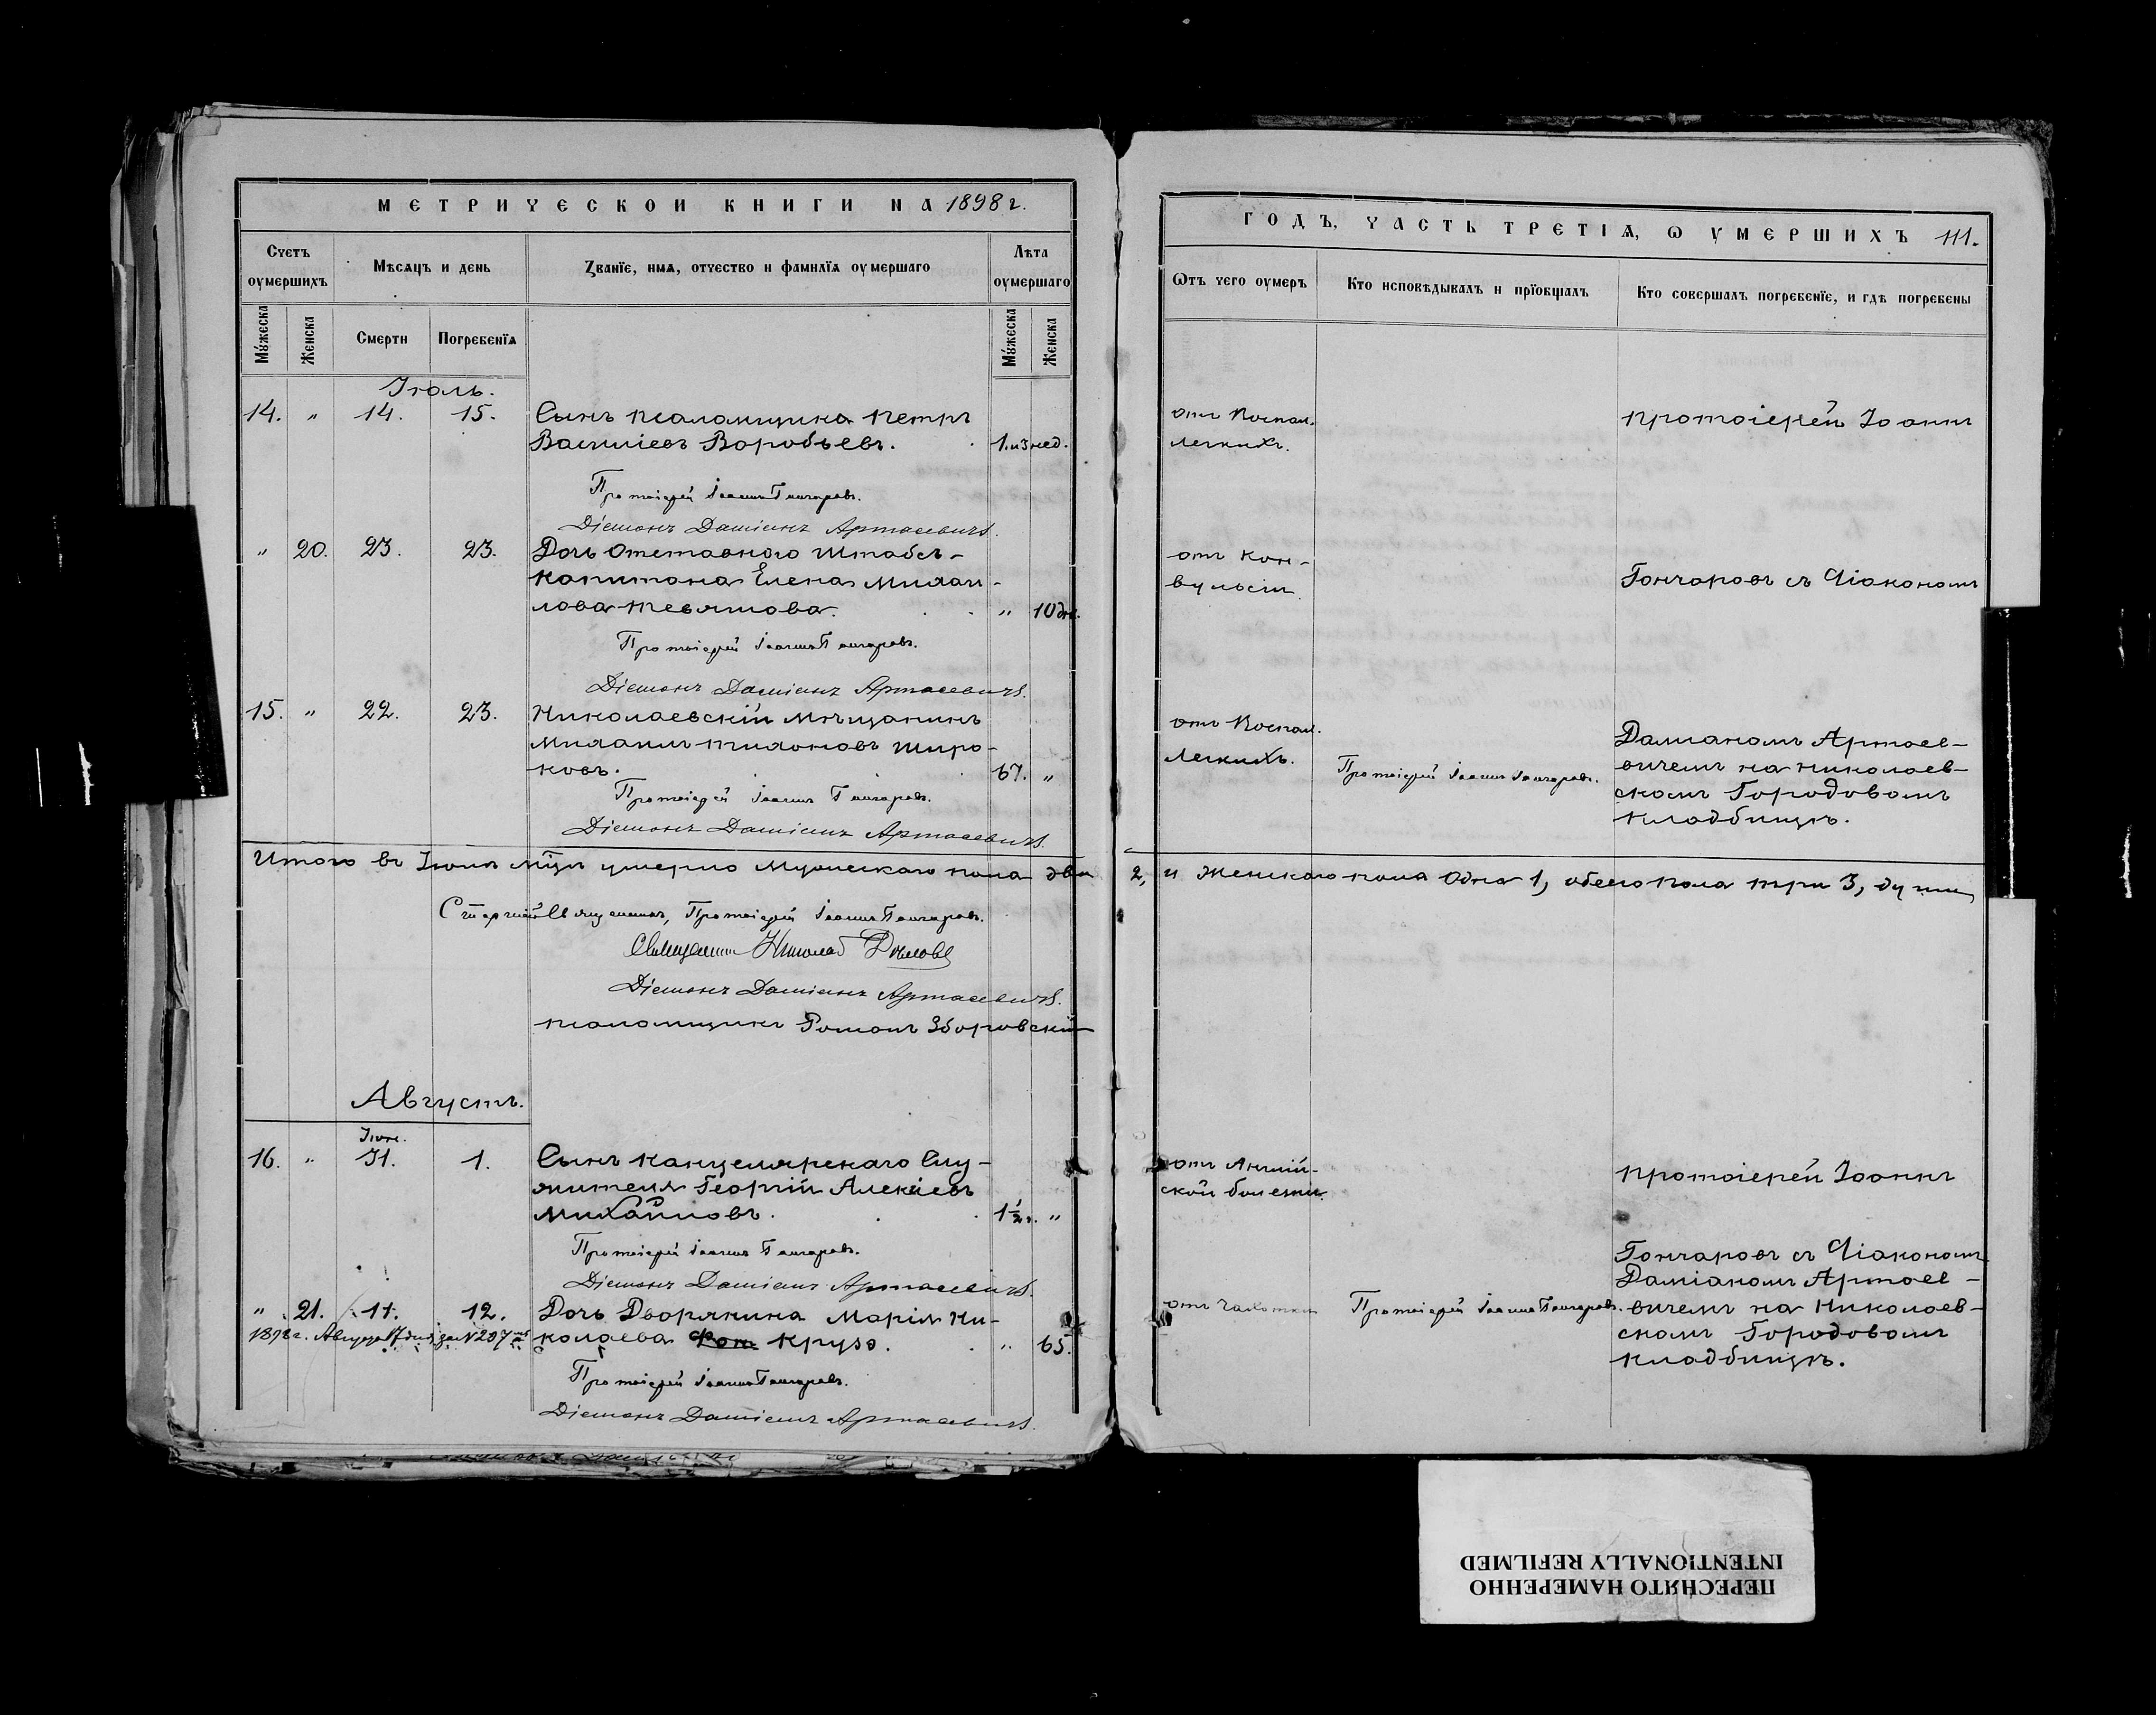 МЕТРИЧЕСКОЙ КНИГИ НА 1898 г.
Счетъ оумершихъ
Мѣсяцъ и день
Званїе, имя, отчество и фамилїя оумершаго
Лѣта оумершаго
Мужеска
Женска
Смерти
Погребенїя
Мужеска
Женска
Іюль.
14. " 14. 15. Сынъ псаломщика Петръ
Василіевъ Воробьевъ. 1. и 3 нед.
Протоіерей Іоаннъ Гончаровъ.
Діаконъ Даміанъ Артасевичъ.
" 20. 23. 23. Дочь Отставного Штабсъ-
Капитана Елена Михаи-
лова Тевяшова. " 10 дн.
Протоіерей Іоаннъ Гончаровъ.
Діаконъ Даміанъ Артасевичъ.
15. " 22. 23. Николаевскій Мѣщанинъ
Михаилъ Тихоновъ Широ-
ковъ. 67. "
Протоіерей Іоаннъ Гончаровъ.
Діаконъ Даміанъ Артасевичъ.
Итого въ Іюлѣ мѣцѣ умерло Мужескаго пола два
Старшій Священникъ, Протоіерей Іоаннъ Гончаровъ.
Священникъ Николай
Діаконъ Даміанъ Артасевичъ.
псаломщикъ Романъ Зборовскій
Августъ.
Іюл.
16. " 31. 1. Сынъ канцелярскаго Слу-
жителя Георгій Алексіевъ
Михайловъ. 1 1/2 г. "
Протоіерей Іоаннъ Гончаровъ.
Діаконъ Даміанъ Артасевичъ.
" 21. 11. 12. Дочь Дворянина Марія Ни-
1898 г. Августа 17 дня, за № 207
колаева Фон Крузо. " 65.
Протоіерей Іоаннъ Гончаровъ.
Діаконъ Даміанъ Артасевичъ.
ГОДЪ, ЧАСТЬ ТРЕТІЯ, Ѡ УМЕРШИХЪ 111.
Ѿтъ чего оумеръ
Кто исповѣдывалъ и прїобщалъ
Кто совершалъ погребенїе, и гдѣ погребены
отъ Воспал.
легкихъ.
Протоіерей Іоаннъ
отъ кон-
вульсіи.
Гончаровъ съ Діакономъ
отъ Воспал.
Легкихъ.
Протоіерей Іоаннъ Гончаровъ.
Даміаномъ Артасе-
вичемъ на Николаев-
скомъ Городовомъ
Кладбищѣ.
2, и Женскаго пола Одна 1, обоего пола три 3, души
отъ Англій-
ской болезни.
Протоіерей Іоаннъ
Гончаровъ съ Діакономъ
Даміаномъ Артасе-
отъ Чахотки
Протоіерей Іоаннъ Гончаровъ.
вичемъ на Николаев-
скомъ Городовомъ
Кладбищѣ.
ПЕРЕСНЯТО НАМЕРЕННО
INTENTIONALLY REFILMED